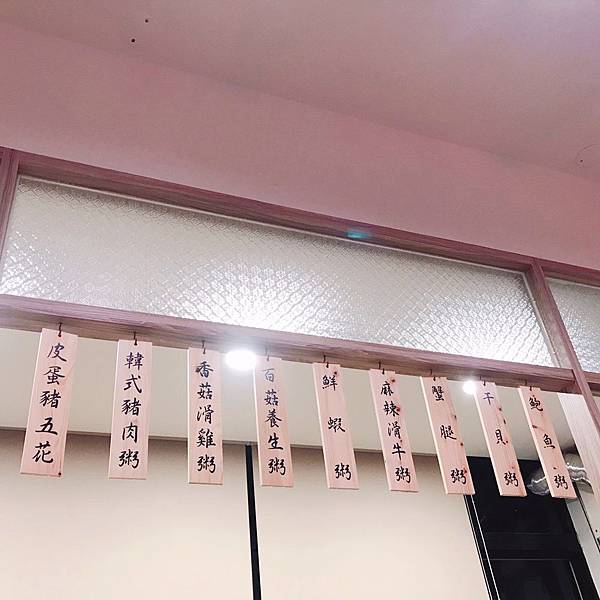 皮蛋豬五花
韓式豬肉粥
香菇滑雞粥
百菇養生粥
鮮蝦粥
麻辣滑牛粥
蟹腿粥
干貝粥
鮑魚粥